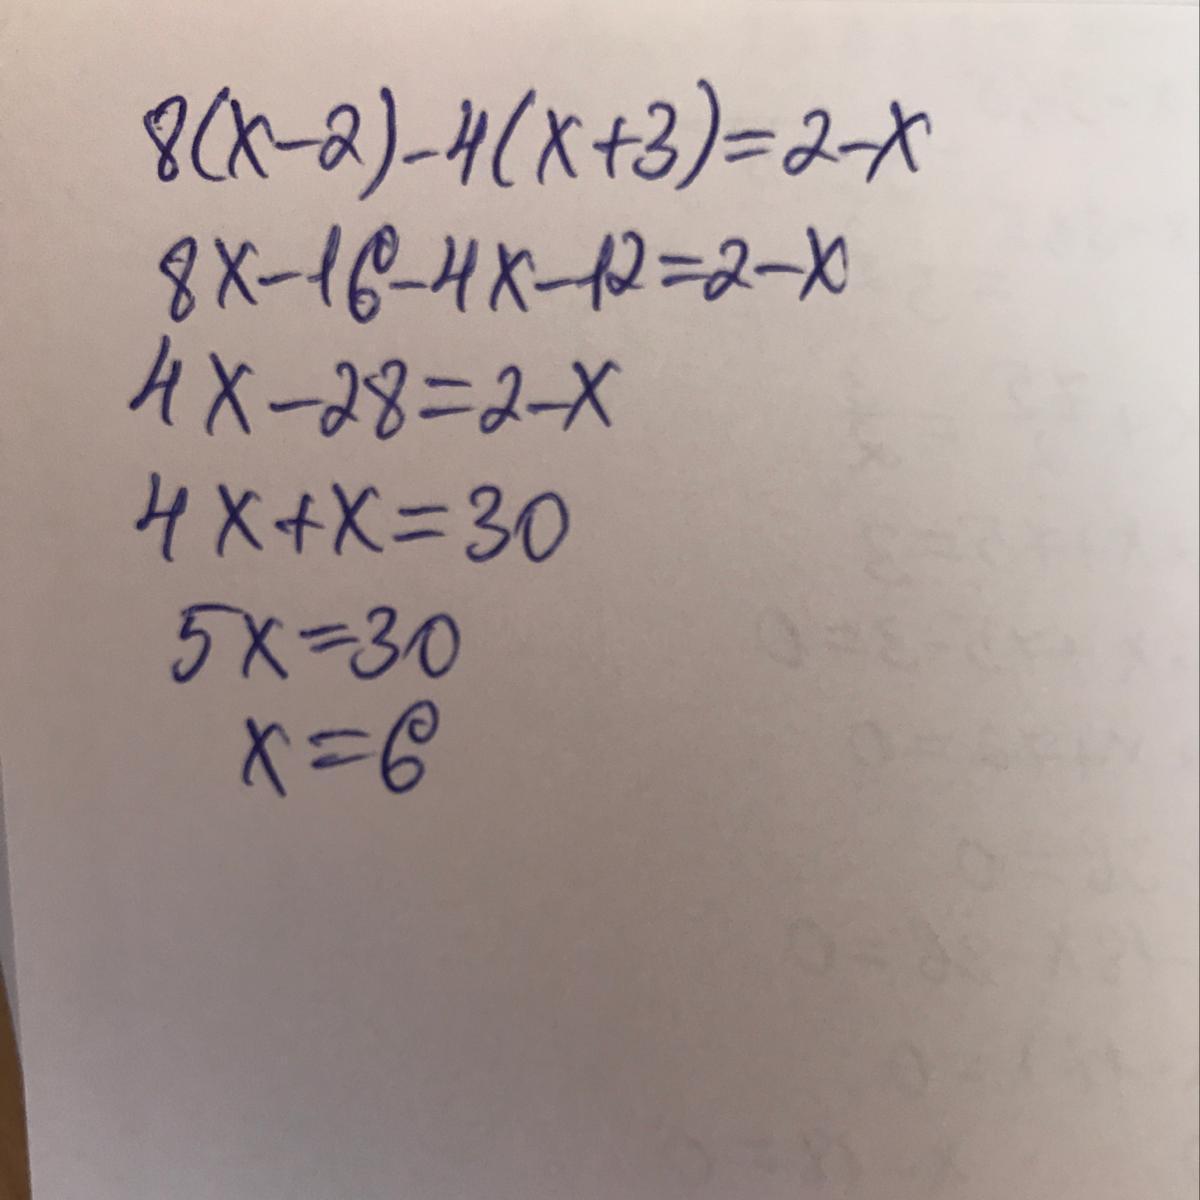 8(x-2)-4(x+3)=2-x
8x-16-4x-12=2-x
4x-28=2-x
4x+x=30
5x=30
x=6